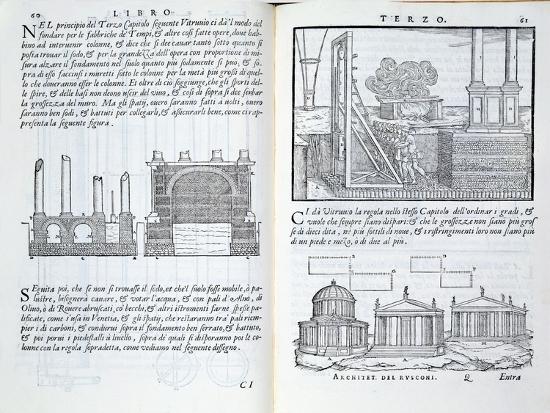 60 LIBRO
NEL principio del Terzo Capitolo seguente Vitruuio ci dà 'l modo del
fondare per le fabbriche de' Tempi, & altre cosi fatte opere, doue hab-
bino ad interuenir colonne, & dice che si dee cauar tanto sotto quanto si
posta trouar il sodo, & per la grandezza dell'opera con proportione di mi-
sura alzare il fondamento nel suolo quanto più sodamente si può, & so-
pra di esso facciusi i muretti sotto le colonne per la metà più grossi di quel-
lo che doueranno esser le colonne. Et oltre di ciò soggiunge, che gli sporti del-
le spire, & delle basi non deono uscir del uiuo, & cosi di sopra si dee serbar
la grossezza del muro. Ma gli spatij, ouero saranno fatti à uolti, ouero
saranno ben sodi, & battuti per collegarli, & assicurarli bene, come ci rap-
presenta la seguente figura.
Seguita poi, che se non si trouasse il sodo, et che'l suolo fosse mobile, ò pa-
lustre, bisognerà cauare, & votar l'acqua, & con pali d'Alno, di
Oliuo, ò di Rouere abruscati, co' becchi, & altri istromenti farne spesse pa-
lificate, come s'usa in Venetia, & gli spatij, che resteranno tra' pali riem-
pier di carboni, & condursi sopra il fondamento ben serrato, & battuto,
& poi porui i piedestalli à liuello, sopra di quali si disporanno poi le co-
lonne con la regola sopradetta, come vediamo nel seguente dissegno.
CI
TERZO. 61
CI dà Vitruuio la regola nello stesso Capitolo dell'ordinar i gradi, &
vuole che sempre siano dispari: & che le grossezze non siano più gros
se di dieci dita, nè più sottili di noue, & i ristringimenti loro non siano più
di un piede e mezo, ò di due al più.
ARCHITET. DEL RVSCONI. Q Entra